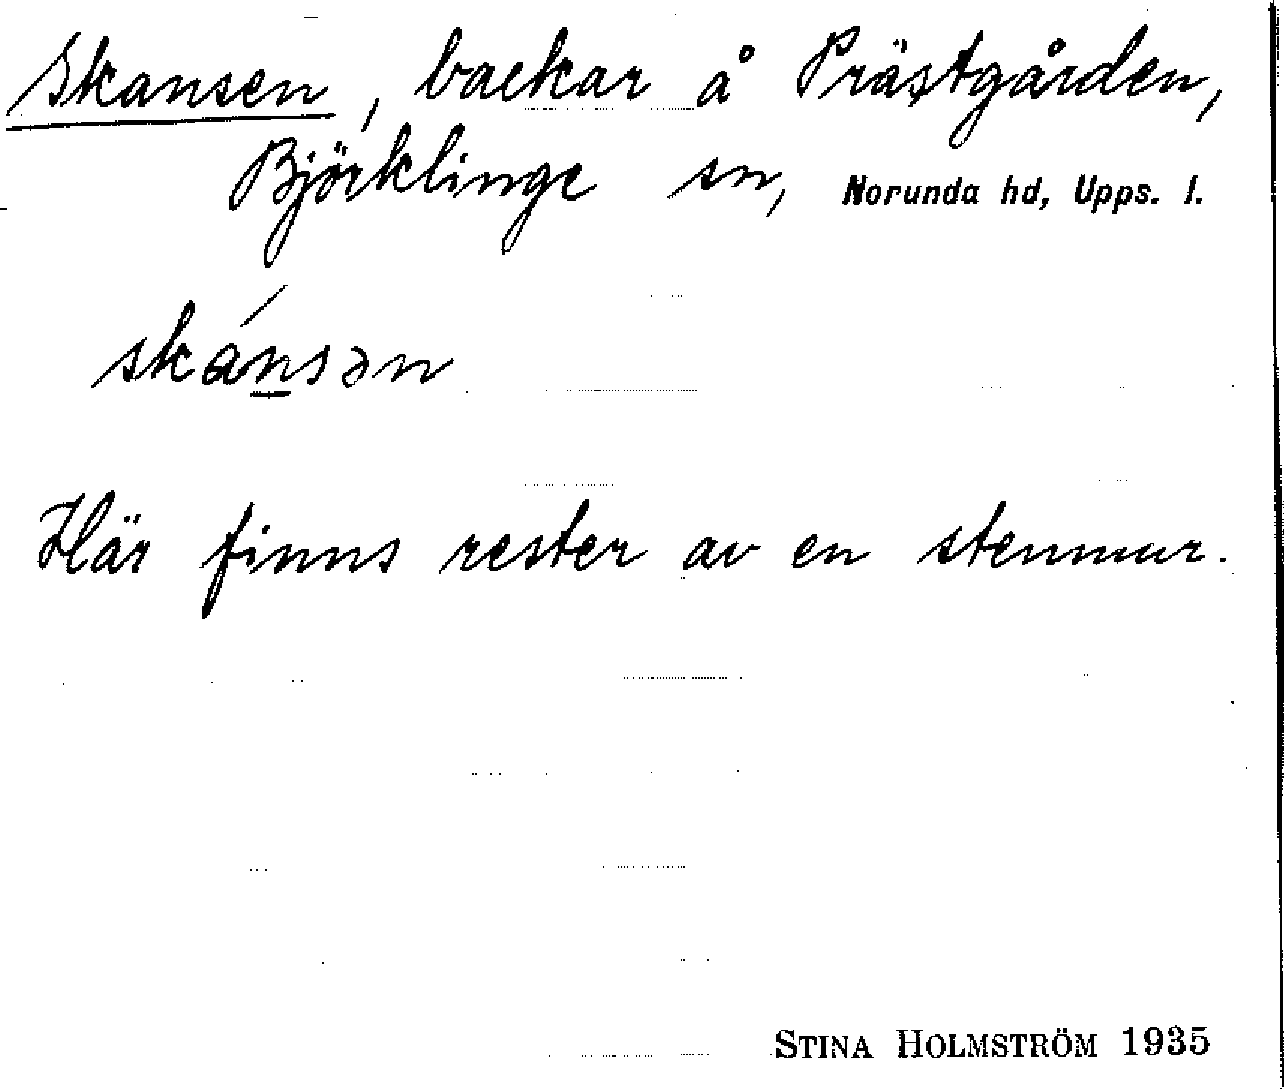 Skansen, backar å Prästgården,
Björklinge sn, Norunda hd, Upps. l.
skánsən
Här finns rester av en stenmur.
STINA HOLMSTRÖM 1935